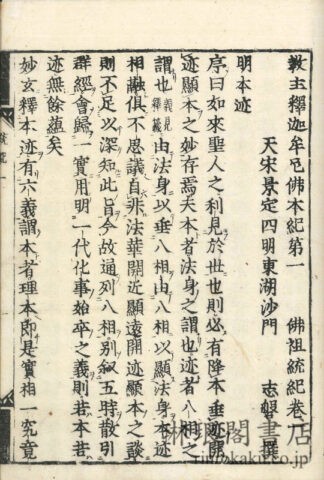 教主釋迦牟尼佛本紀第一 佛祖統紀卷一
大宋景定四明東湖沙門 志磐 撰
明本迹
序曰如來聖人之利見於世也則必有降本垂迹開
迹顯本之妙存焉夫本者法身之謂也迹者八相之
謂也 由法身以垂八相由八相以顯法身本迹
相融俱不思議自非法華開近顯遠開迹顯本之談
則不足以深知此旨今故通列八相別敘五時散引
群經會歸一實用明一代化事始卒之義則若本若
迹無餘蘊矣
妙玄釋本迹有六義謂本者理本即是實相一究竟
琳琅閣書店
rinrokakuy.com